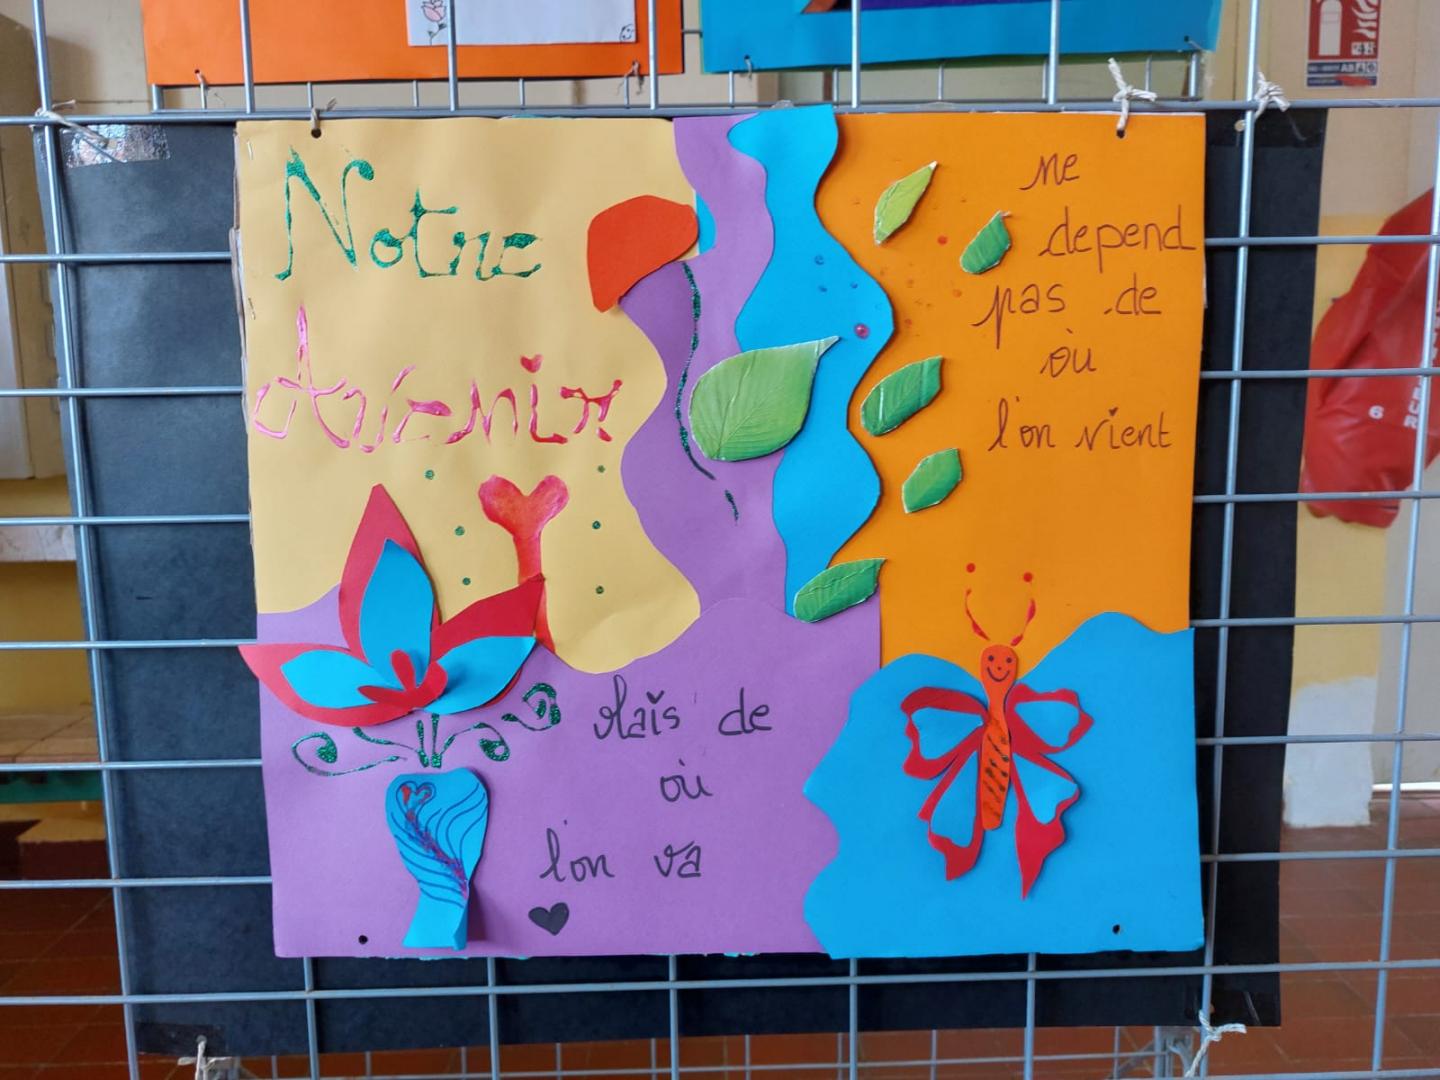 Notre
Avenir
ne
depend
pas de
où
l'on vient
Mais de
où
l'on va
6